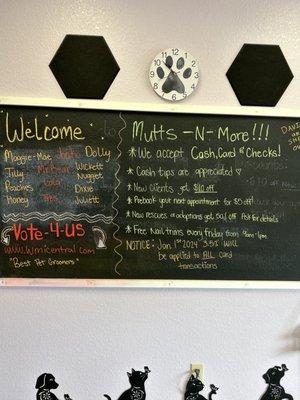 Welcome
Maggie-Mae
Dolly
Tilly
Wickett
Nugget
Peaches
Lola
Dixie
Honey
Juliett
Vote-4-US
www.wmicentral.com
"Best Pet Groomers"
Mutts -N- More!!!
*We accept Cash, Card & Checks!
*Cash tips are appreciated ♡
*New clients get $10 off
*Rebook your next appointment for $5 off!
*New rescues or adoptions get 50% off Ask for details
*Free Nail trims every friday from 9am-1pm
NOTICE: Jan 1st 2024 3.5% Will
be applied to ALL card
transactions